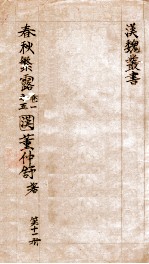 漢魏叢書
春秋繁露 卷一之五 漢董仲舒著
第十一册